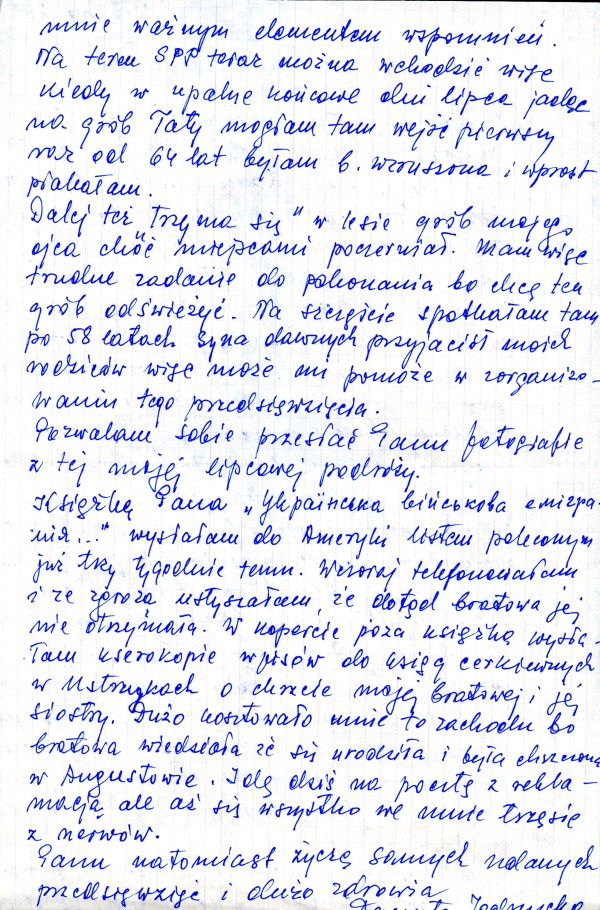 mnie ważnym elementem wspomnień.
Na teren SPP teraz można wchodzić więc
kiedy w upalne końcowe dni lipca jadąc
na grób Taty mogłam tam wejść pierwszy
raz od 64 lat byłam b. wzruszona i wprost
płakałam.
Dalej też „trzyma się" w lesie grób mojego
ojca choć miejscami poczerniał. Mam więc
trudne zadanie do pokonania bo chcę ten
grób odświeżyć. Na szczęście spotkałam tam
po 58 latach syna dawnych przyjaciół moich
rodziców więc może mi pomoże w zorganizo-
waniu tego przedsięwzięcia.
Pozwalam sobie przesłać Panu fotografie
z tej mojej lipcowej podróży.
Książkę Pana „Українська військова еміґра-
ція..." wysłałam do Ameryki listem poleconym
już trzy tygodnie temu. Wczoraj telefonowałam
i ze zgrozą usłyszałam, że dotąd bratowa jej
nie otrzymała. W kopercie poza książką wysła-
łam kserokopie wpisów do ksiąg cerkiewnych
w Ustrzykach o chrzcie mojej bratowej i jej
siostry. Dużo kosztowało mnie to zachodu bo
bratowa wiedziała że się urodziła i była chrzczona
w Augustowie. Idę dziś na pocztę z rekla-
macją ale aż się wszystko we mnie trzęsie
z nerwów.
Panu natomiast życzę samych udanych
przedsięwzięć i dużo zdrowia